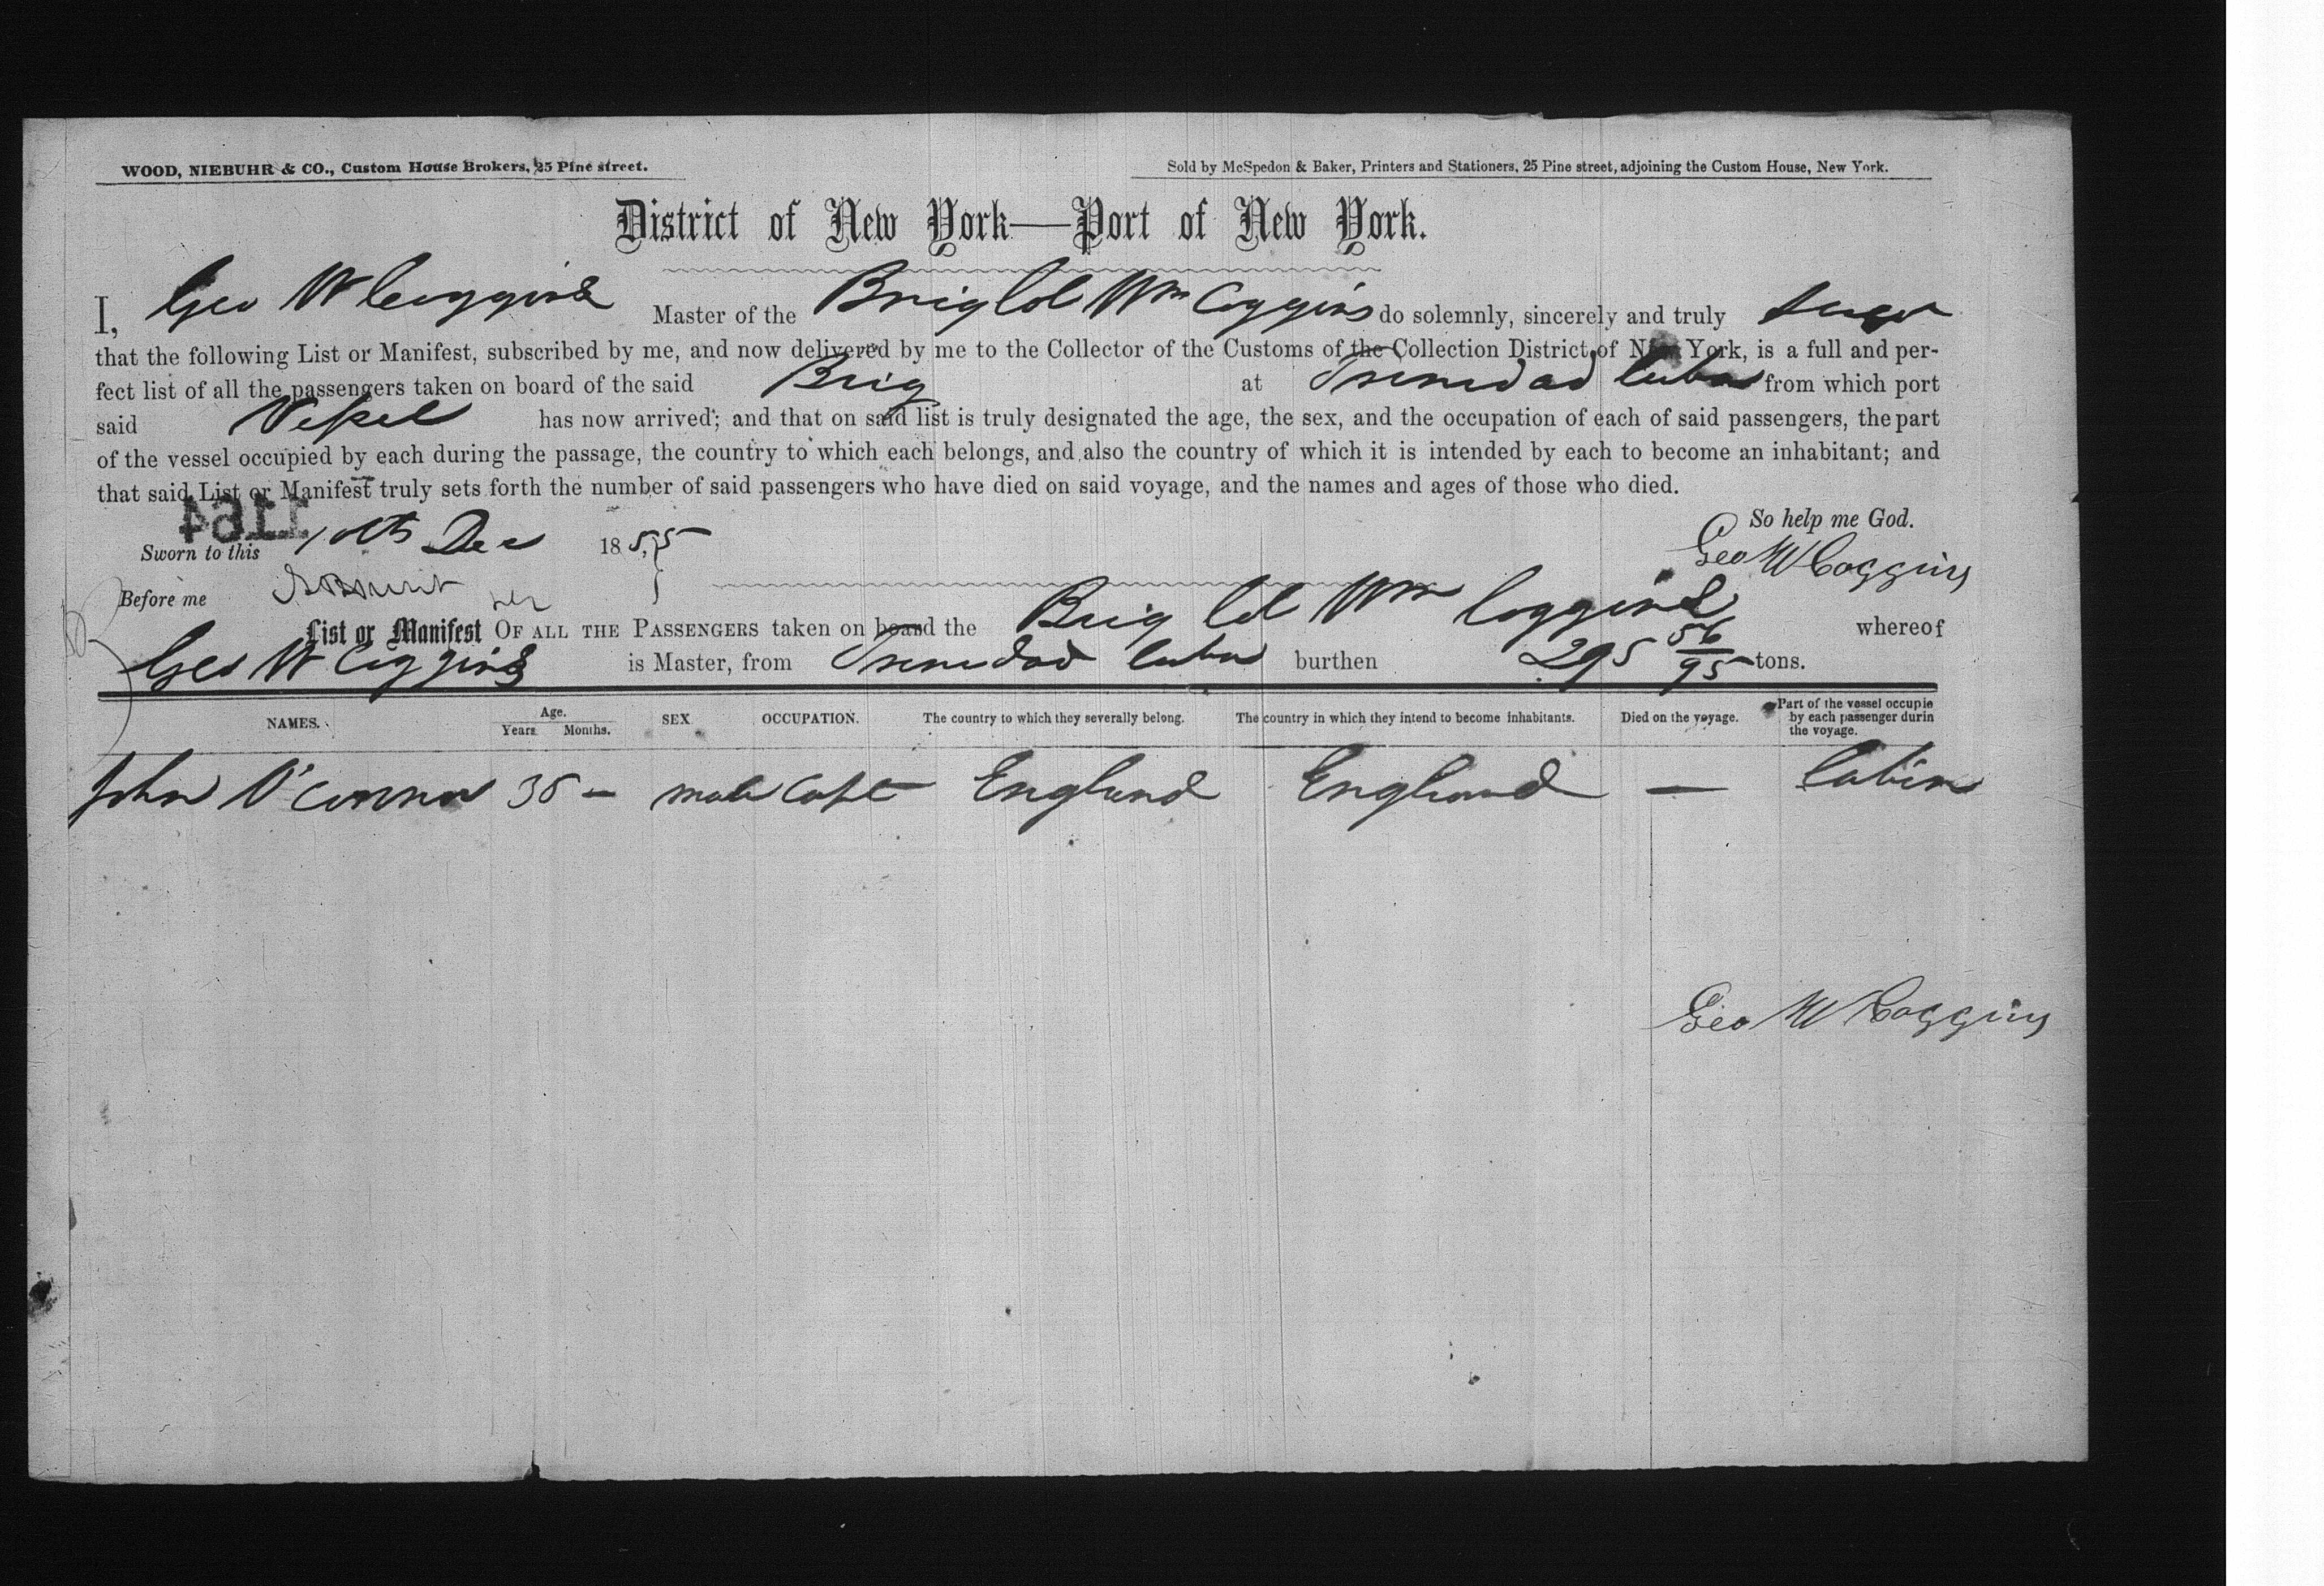 WOOD, NIEBUHR & CO., Custom House Brokers, 25 Pine street.
Sold by McSpedon & Baker, Printers and Stationers, 25 Pine street, adjoining the Custom House, New York.
District of New York—Port of New York.
I, Geo W Coggins Master of the Brig Col Wm Coggins do solemnly, sincerely and truly swear
that the following List or Manifest, subscribed by me, and now delivered by me to the Collector of the Customs of the Collection District of New York, is a full and per-
fect list of all the passengers taken on board of the said Brig at Trinidad Cuba from which port
said Vessel has now arrived; and that on said list is truly designated the age, the sex, and the occupation of each of said passengers, the part
of the vessel occupied by each during the passage, the country to which each belongs, and also the country of which it is intended by each to become an inhabitant; and
that said List or Manifest truly sets forth the number of said passengers who have died on said voyage, and the names and ages of those who died.
1164
So help me God.
Sworn to this 10th Dec 1855
Geo W Coggins
Before me
List or Manifest OF ALL THE PASSENGERS taken on board the Brig Col Wm Coggins whereof
Geo W Coggins is Master, from Trinidad Cuba burthen 295 56/95 tons.
NAMES. Age. Years. Months. SEX OCCUPATION. The country to which they severally belong. The country in which they intend to become inhabitants. Died on the voyage. Part of the vessel occupie by each passenger durin the voyage.
John O'Connor 38 — male Capt England England — Cabin
Geo W Coggins